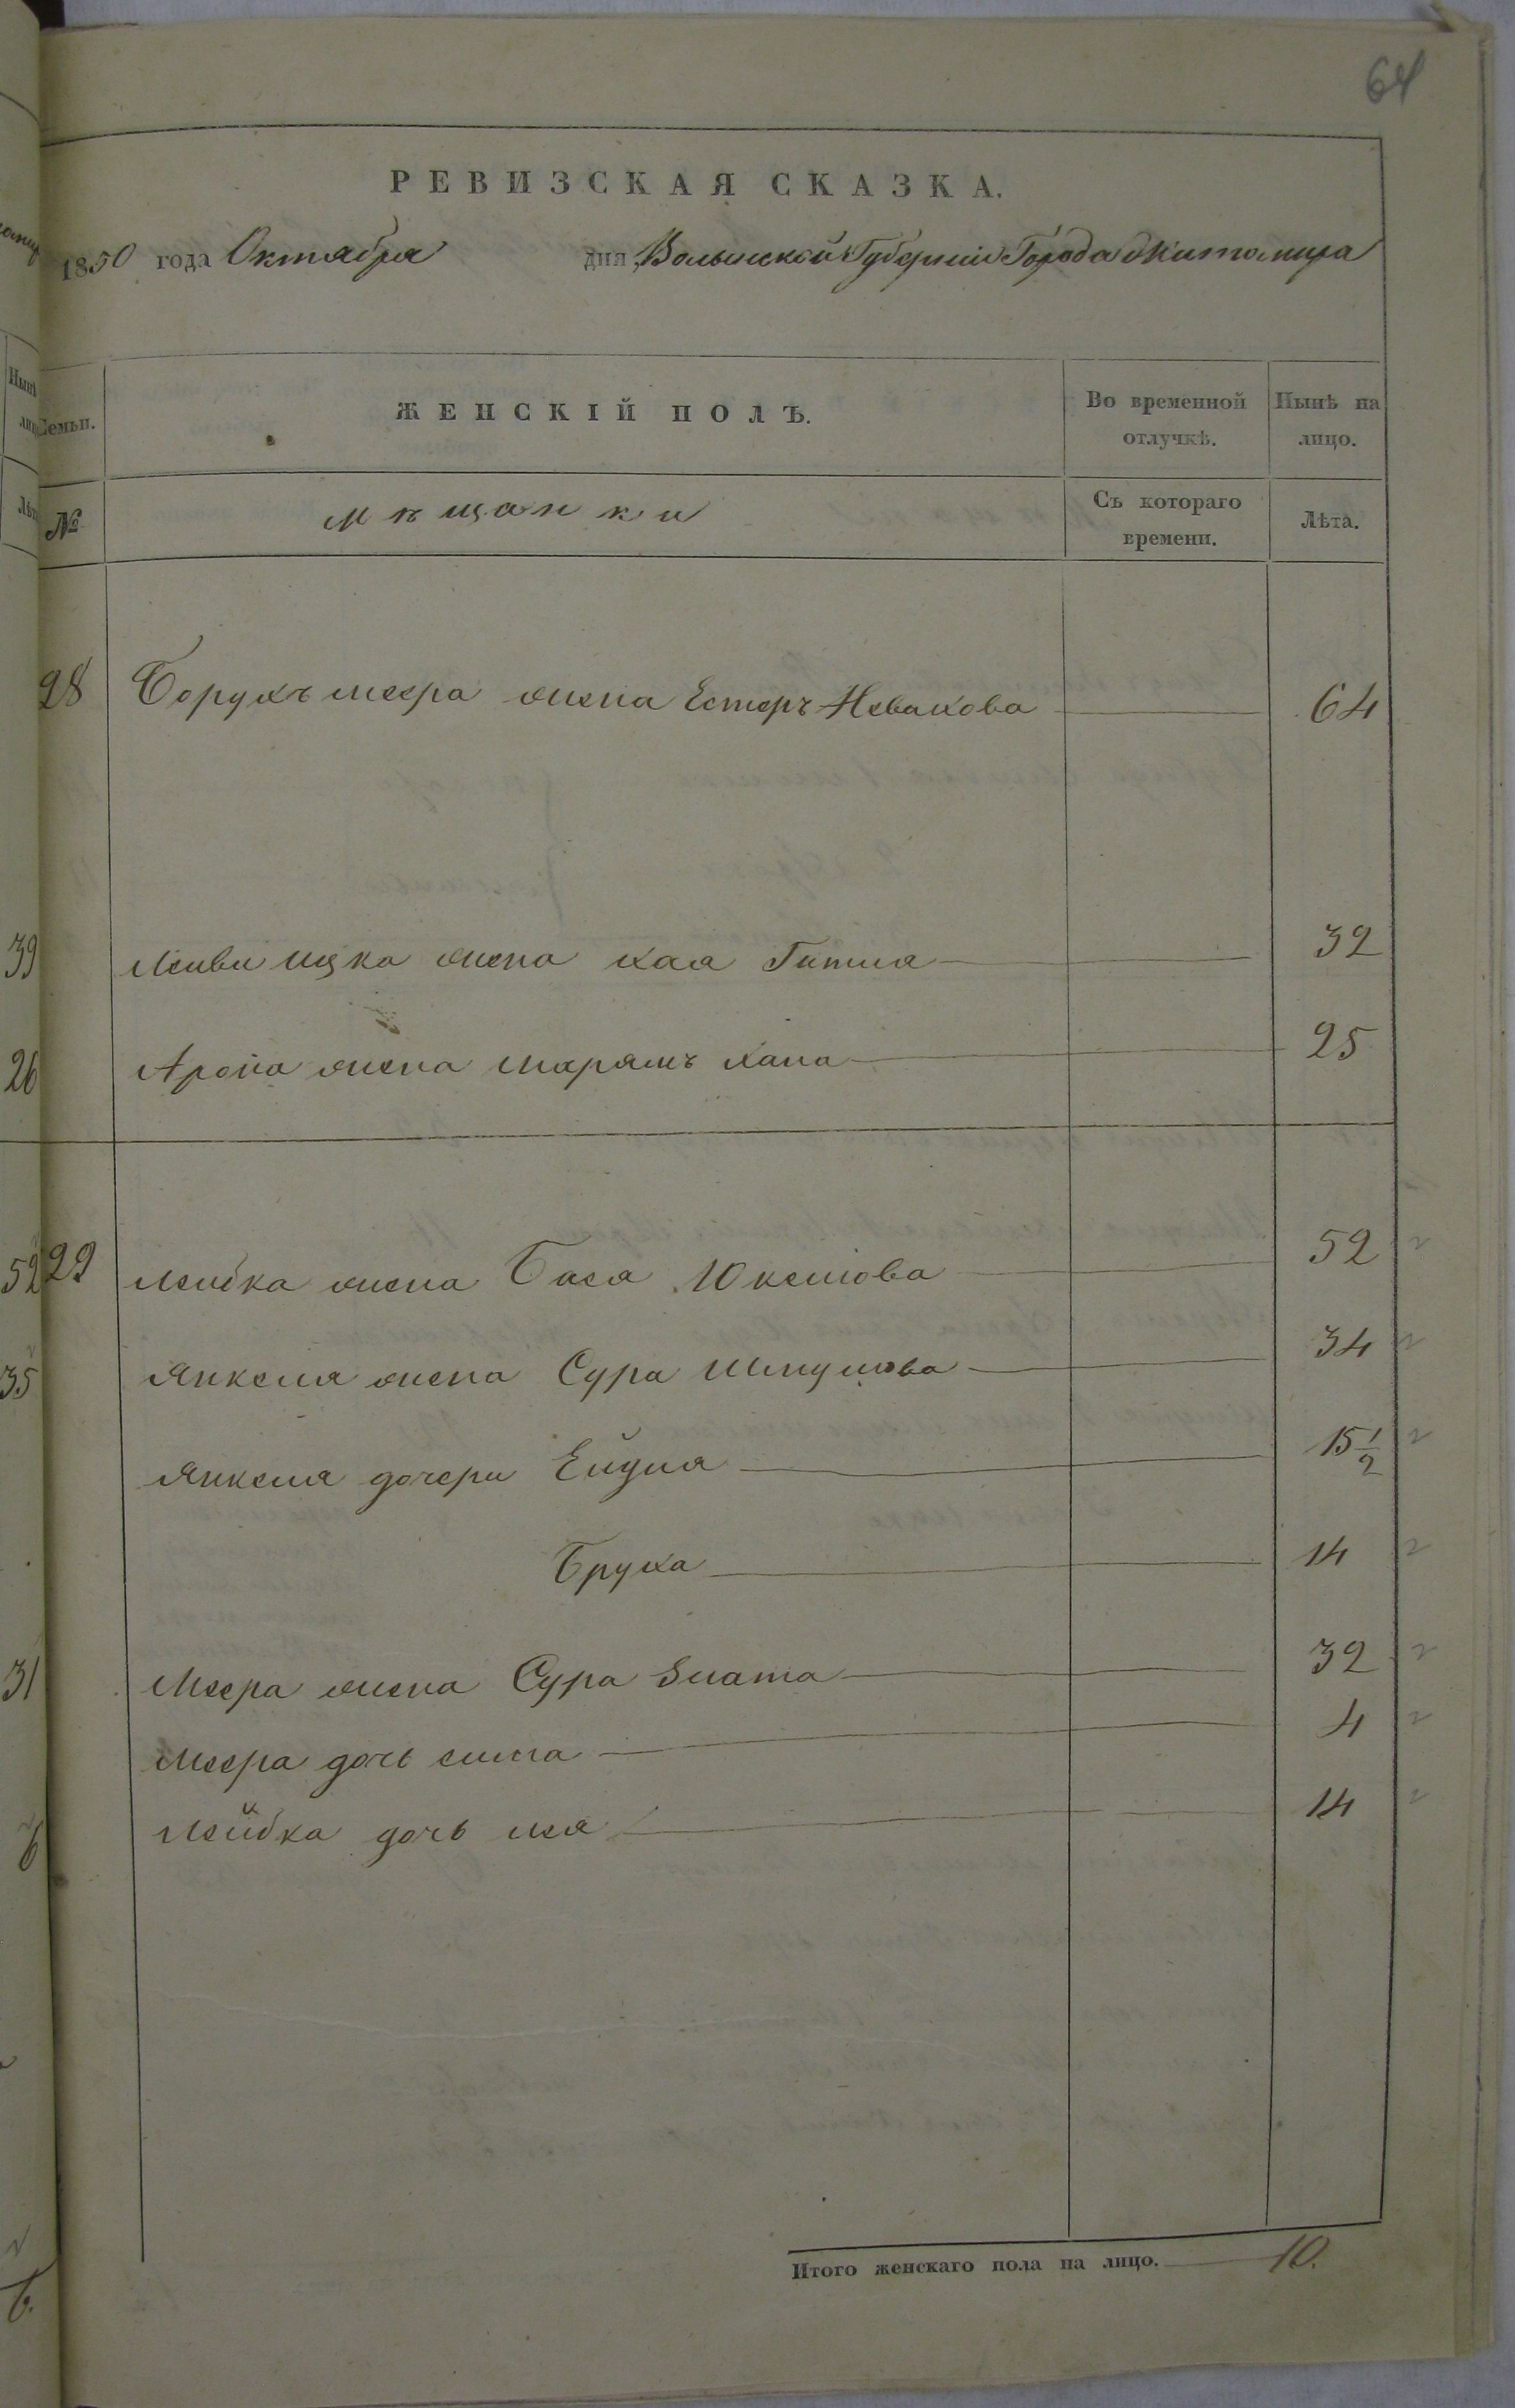 64
РЕВИЗСКАЯ СКАЗКА.
1850 года Октября дня, Волынской Губерніи Города Житомира
Семьи.
ЖЕНСКІЙ ПОЛЪ.
Во временной отлучкѣ.
Нынѣ на лицо.
№
Мѣщанки
Съ котораго времени.
Лѣта.
28 Борухъ меера жена Естеръ Невахова 64
39 Лейви ицка жена Хая Гитля 32
26 Арона жена Марямъ Хана 25
52 29 Лейбка жена Бася 52
35 Янкеля жена Сура 34
Янкеля дочери Ейдля 15 1/2
Бруха 14
31 Меера жена Сура Злата 32
Меера дочь 4
Лейбка дочь Лея 14
Итого женскаго пола на лицо. 10.